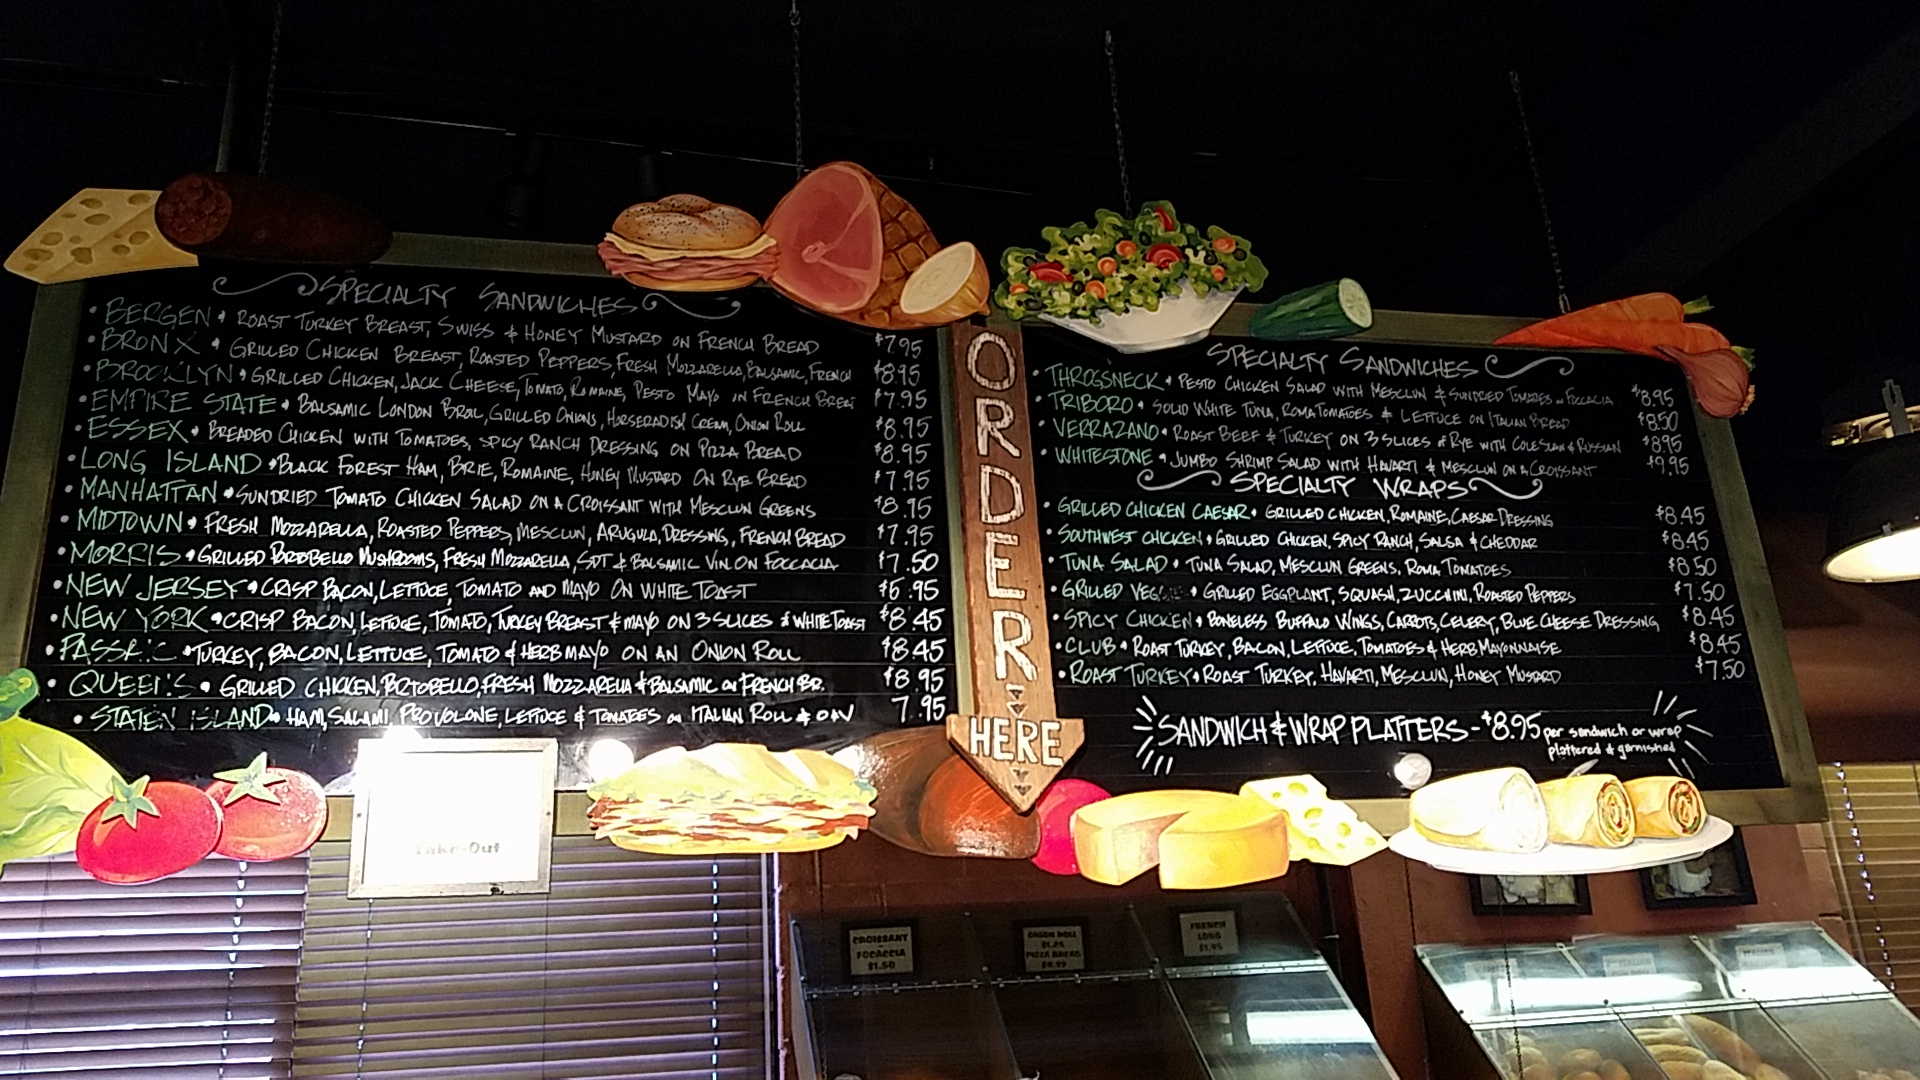 SPECIALTY SANDWICHES
• BERGEN • ROAST TURKEY BREAST, SWISS & HONEY MUSTARD ON FRENCH BREAD $7.95
• BRONX • GRILLED CHICKEN BREAST, ROASTED PEPPERS, FRESH MOZZARELLA, BALSAMIC, FRENCH $8.95
• BROOKLYN • GRILLED CHICKEN, JACK CHEESE, TOMATO, ROMAINE, PESTO MAYO ON FRENCH BREAD $7.95
• EMPIRE STATE • BALSAMIC LONDON BROIL, GRILLED ONIONS, HORSERADISH CREAM, ONION ROLL $8.95
• ESSEX • BREADED CHICKEN WITH TOMATOES, SPICY RANCH DRESSING ON PIZZA BREAD $8.95
• LONG ISLAND • BLACK FOREST HAM, BRIE, ROMAINE, HONEY MUSTARD ON RYE BREAD $7.95
• MANHATTAN • SUNDRIED TOMATO CHICKEN SALAD ON A CROISSANT WITH MESCLUN GREENS $8.95
• MIDTOWN • FRESH MOZZARELLA, ROASTED PEPPERS, MESCLUN, ARUGULA, DRESSING, FRENCH BREAD $7.95
• MORRIS • GRILLED PORTOBELLO MUSHROOMS, FRESH MOZZARELLA, SDT & BALSAMIC VIN ON FOCCACIA $7.50
• NEW JERSEY • CRISP BACON, LETTUCE, TOMATO AND MAYO ON WHITE TOAST $6.95
• NEW YORK • CRISP BACON, LETTUCE, TOMATO, TURKEY BREAST & MAYO ON 3 SLICES WHITE TOAST $8.45
• PASSAIC • TURKEY, BACON, LETTUCE, TOMATO & HERB MAYO ON AN ONION ROLL $8.45
• QUEENS • GRILLED CHICKEN, PORTOBELLO, FRESH MOZZARELLA & BALSAMIC ON FRENCH BR. $8.95
• STATEN ISLAND • HAM, SALAMI, PROVOLONE, LETTUCE & TOMATOES ON ITALIAN ROLL & O&V 7.95
ORDER
HERE
SPECIALTY SANDWICHES
• THROGSNECK • PESTO CHICKEN SALAD WITH MESCLUN & SUNDRIED TOMATOES ON FOCCACIA $8.95
• TRIBORO • SOLID WHITE TUNA, ROMA TOMATOES & LETTUCE ON ITALIAN BREAD $8.50
• VERRAZANO • ROAST BEEF & TURKEY ON 3 SLICES OF RYE WITH COLESLAW & RUSSIAN $8.95
• WHITESTONE • JUMBO SHRIMP SALAD WITH HAVARTI & MESCLUN ON A CROISSANT $9.95
SPECIALTY WRAPS
• GRILLED CHICKEN CAESAR • GRILLED CHICKEN, ROMAINE, CAESAR DRESSING $8.45
• SOUTHWEST CHICKEN • GRILLED CHICKEN, SPICY RANCH, SALSA & CHEDDAR $8.45
• TUNA SALAD • TUNA SALAD, MESCLUN GREENS, ROMA TOMATOES $8.50
• GRILLED VEGGIE • GRILLED EGGPLANT, SQUASH, ZUCCHINI, ROASTED PEPPERS $7.50
• SPICY CHICKEN • BONELESS BUFFALO WINGS, CARROTS, CELERY, BLUE CHEESE DRESSING $8.45
• CLUB • ROAST TURKEY, BACON, LETTUCE, TOMATOES & HERB MAYONNAISE $8.45
• ROAST TURKEY • ROAST TURKEY, HAVARTI, MESCLUN, HONEY MUSTARD $7.50
SANDWICH & WRAP PLATTERS - $8.95 per sandwich or wrap
plattered & garnished
Take-Out
CROISSANT
FOCACCIA
$1.50
ONION ROLL
$1.25
PIZZA BREAD
FRENCH
LONG
$1.95